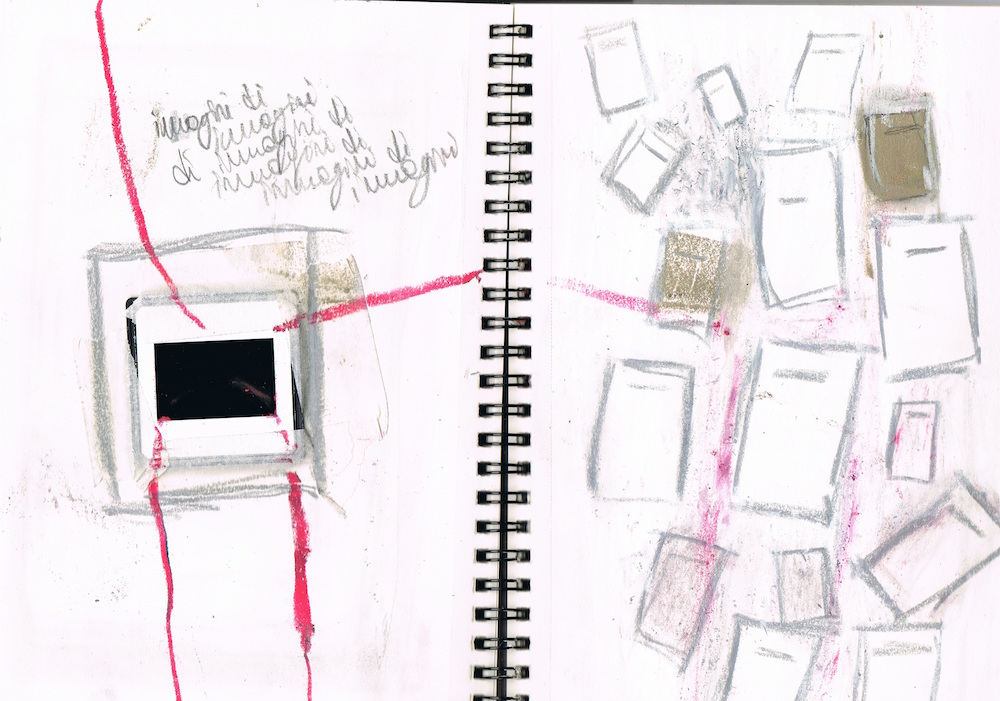 immagini di
immagini
di immagini di
immagini di
immagini di
immagini